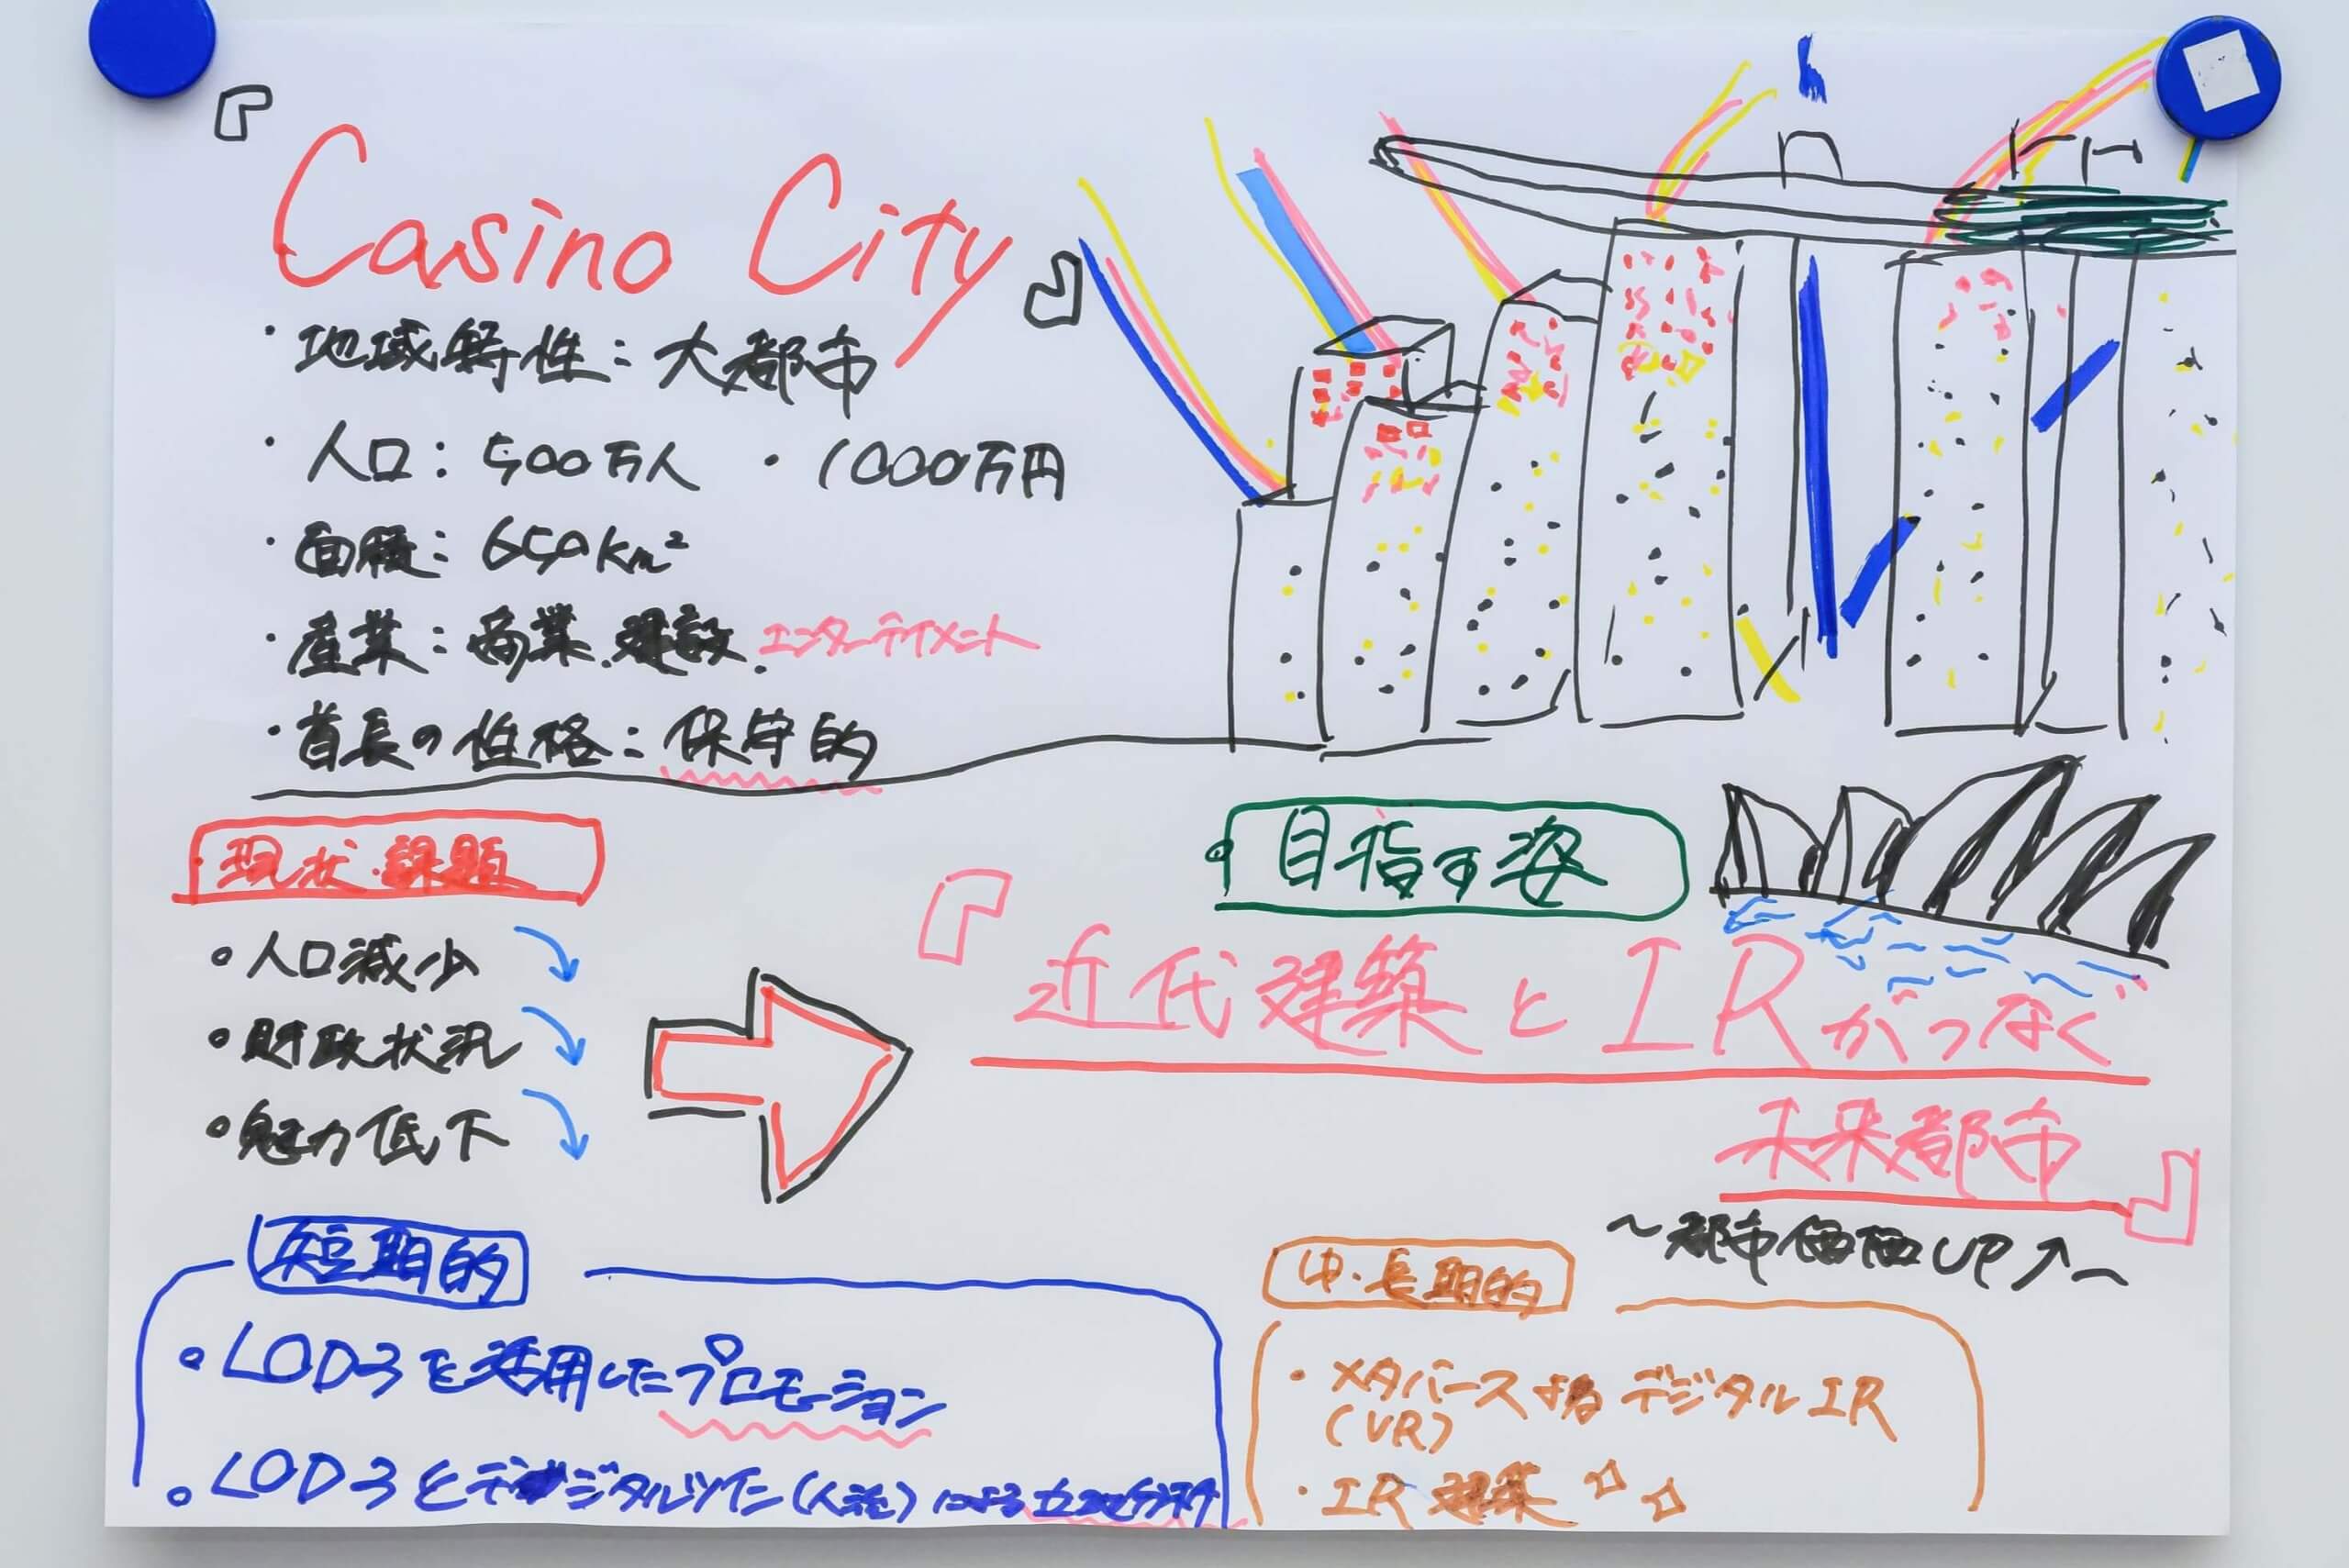 『Casino City』
・地域特性：大都市
・人口：500万人 ・1000万円
・面積：650km²
・産業：商業、建設、エンターテイメント
・首長の性格：保守的
現状・課題
・人口減少
・財政状況
・魅力低下
・目指す姿
『近代建築とIRがつなぐ
未来都市』
～都市価値UP↑～
短期的
・LOD3を活用したプロモーション
・LOD3とデジタルツイン(人流)による立地分析
中・長期的
・メタバースよるデジタルIR
(VR)
・IR建築